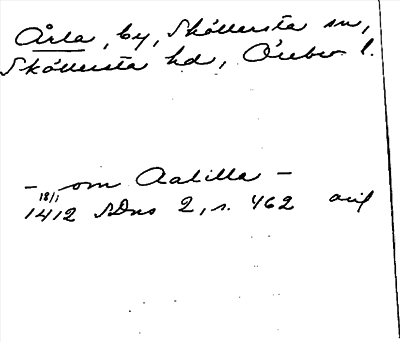 Årla, by, Sköllersta sn,
Sköllersta hd, Örebro l.
- om Aalilla -
18/1
1412 SDns 2, s. 462 avf